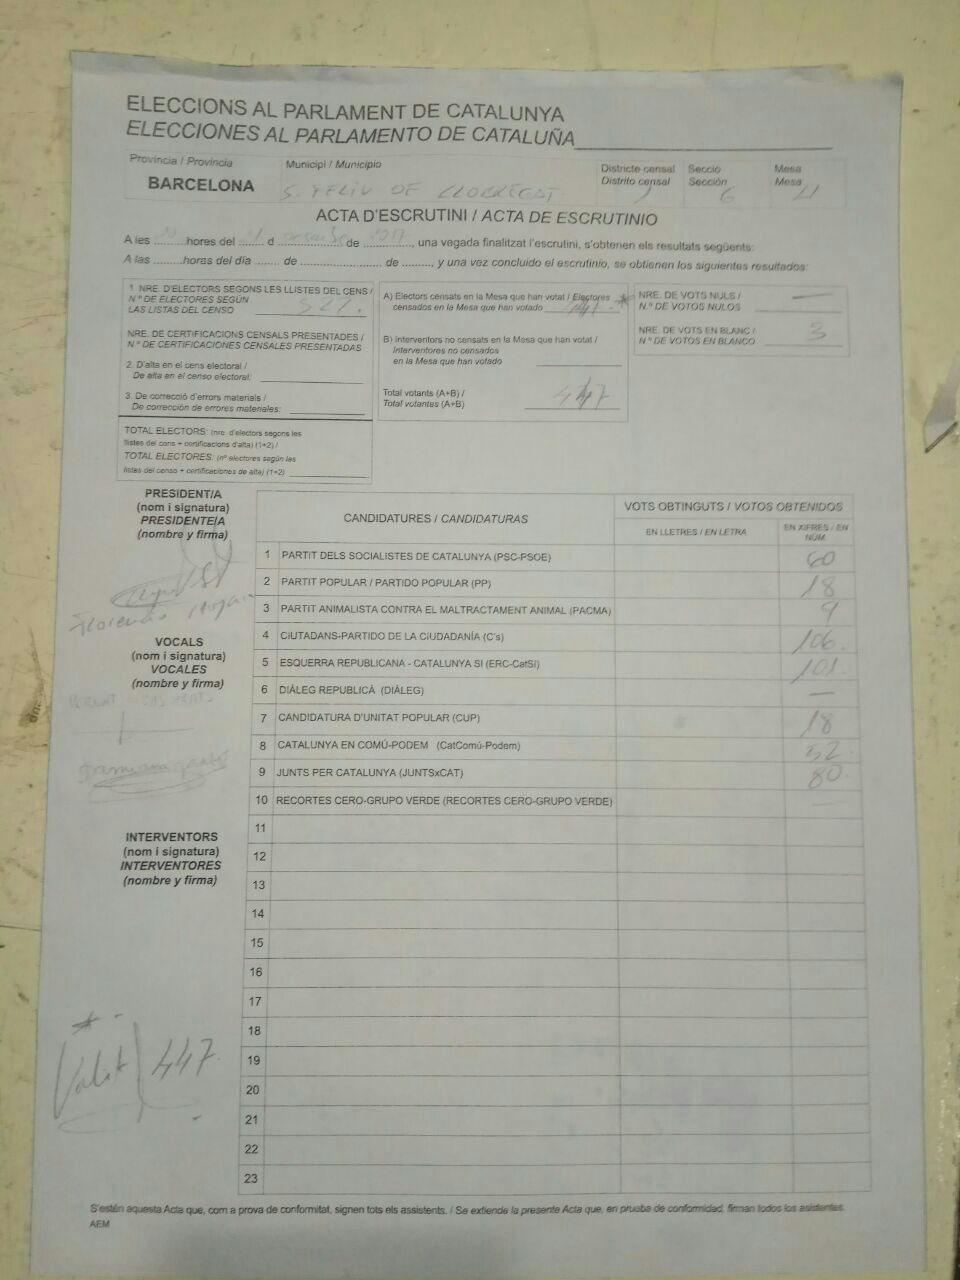 ELECCIONS AL PARLAMENT DE CATALUNYA
ELECCIONES AL PARLAMENTO DE CATALUÑA
Província / Provincia
BARCELONA
Municipi / Municipio
S. FELIU DE LLOBREGAT
Districte censal
Distrito censal
1
Secció
Sección
6
Mesa
Mesa
U
ACTA D'ESCRUTINI / ACTA DE ESCRUTINIO
A les ...20... hores del ...21... d ...desembre... de ...2017..., una vegada finalitzat l'escrutini, s'obtenen els resultats següents:
A las .........horas del día ....... de .............................. de ........, y una vez concluido el escrutinio, se obtienen los siguientes resultados:
1. NRE. D'ELECTORS SEGONS LES LLISTES DEL CENS /
N.º DE ELECTORES SEGÚN
LAS LISTAS DEL CENSO 527.
NRE. DE CERTIFICACIONS CENSALS PRESENTADES /
N.º DE CERTIFICACIONES CENSALES PRESENTADAS
2. D'alta en el cens electoral /
De alta en el censo electoral:
3. De correcció d'errors materials /
De corrección de errores materiales:
TOTAL ELECTORS: (nre. d'electors segons les
llistes del cens + certificacions d'alta) (1+2) /
TOTAL ELECTORES: (nº electores según las
listas del censo + certificaciones de alta) (1+2)
A) Electors censats en la Mesa que han votat / Electores
censados en la Mesa que han votado 447. *
B) Interventors no censats en la Mesa que han votat /
Interventores no censados
en la Mesa que han votado
Total votants (A+B) /
Total votantes (A+B) 447
NRE. DE VOTS NULS /
N.º DE VOTOS NULOS —
NRE. DE VOTS EN BLANC /
N.º DE VOTOS EN BLANCO 3
PRESIDENT/A
(nom i signatura)
PRESIDENTE/A
(nombre y firma)
Florencio
VOCALS
(nom i signatura)
VOCALES
(nombre y firma)
INTERVENTORS
(nom i signatura)
INTERVENTORES
(nombre y firma)
* Valid 447.
CANDIDATURES / CANDIDATURAS
VOTS OBTINGUTS / VOTOS OBTENIDOS
EN LLETRES / EN LETRA
EN XIFRES / EN
NÚM.
1 PARTIT DELS SOCIALISTES DE CATALUNYA (PSC-PSOE) 60
2 PARTIT POPULAR / PARTIDO POPULAR (PP) 18
3 PARTIT ANIMALISTA CONTRA EL MALTRACTAMENT ANIMAL (PACMA) 9
4 CIUTADANS-PARTIDO DE LA CIUDADANÍA (C's) 106.
5 ESQUERRA REPUBLICANA - CATALUNYA SI (ERC-CatSí) 101.
6 DIÀLEG REPUBLICÀ (DIÀLEG) —
7 CANDIDATURA D'UNITAT POPULAR (CUP) 18
8 CATALUNYA EN COMÚ-PODEM (CatComú-Podem) 52.
9 JUNTS PER CATALUNYA (JUNTSxCAT) 80.
10 RECORTES CERO-GRUPO VERDE (RECORTES CERO-GRUPO VERDE) —
11
12
13
14
15
16
17
18
19
20
21
22
23
S'estén aquesta Acta que, com a prova de conformitat, signen tots els assistents. / Se extiende la presente Acta que, en prueba de conformidad, firman todos los asistentes.
AEM